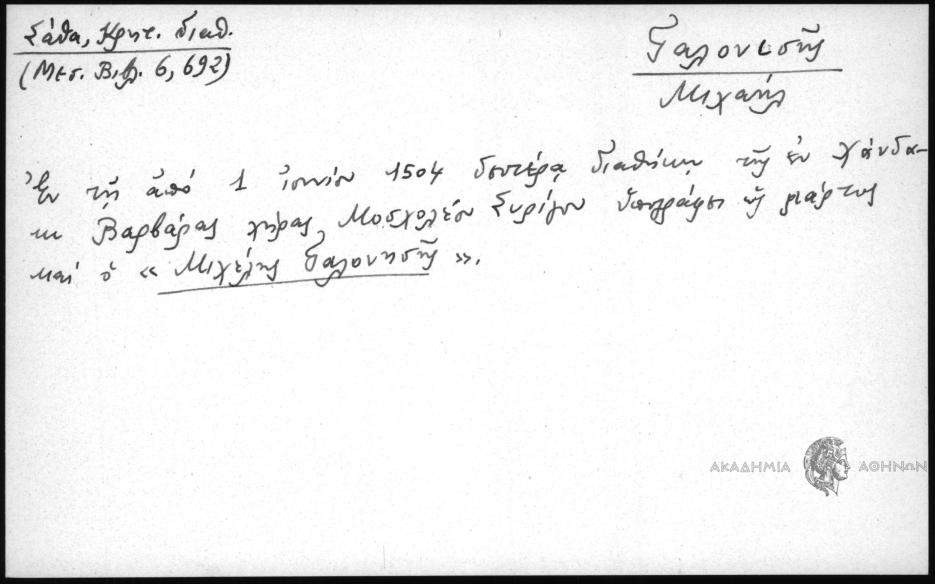 Σάθα, Κρητ. διαθ.
(Μεσ. Βιβλ. 6, 692)
Γαλονισῆς
Μιχαήλ
Ἐν τῇ ἀπό 1 ἰουνίου 1504 δευτέρᾳ διαθήκῃ τῆς ἐν Χάνδα-
κι Βαρβάρας χήρας Μοσχολέου Συρίγου ὑπογράφει ὡς μάρτυς
καί ὁ « Μιχέλης Γαλονησῆς ».
ΑΚΑΔΗΜΙΑ ΑΘΗΝΩΝ